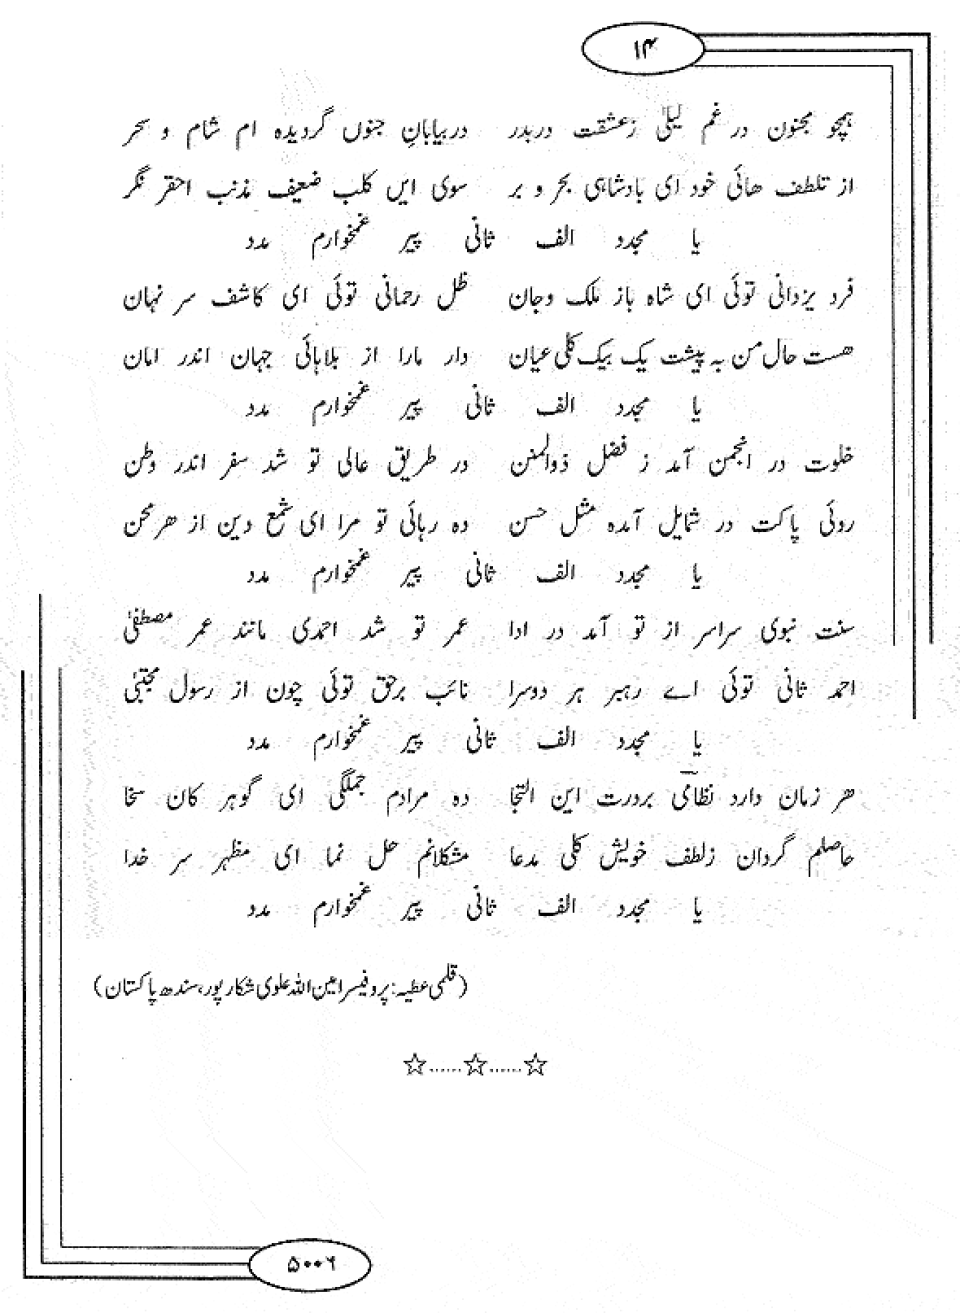 ۱۴
ہمچو مجنون در غم لیلیٰ زعشقت دربدر دربیابانِ جنوں گردیدہ ام شام و سحر
از تلطف ھائی خود ای بادشاہی بحر و بر سوی ایں کلب ضعیف مذنب احقر نگر
یا مجدد الف ثانی پیر غمخوارم مدد
فرد یزدانی توئی ای شاہ باز ملک وجان ظل رحمانی توئی ای کاشف سر نہان
ھست حال من بہ پیشت یک بیک کلی عیان دار مارا از بلاہائی جہان اندر امان
یا مجدد الف ثانی پیر غمخوارم مدد
خلوت در انجمن آمد ز فضل ذوالمنن در طریق عالی تو شد سفر اندر وطن
روئی پاکت در شمایل آمدہ مثل حسن دہ رہائی تو مرا ای شمع دین از ھر محن
یا مجدد الف ثانی پیر غمخوارم مدد
سنت نبوی سراسر از تو آمد در ادا عمر تو شد احمدی مانند عمر مصطفیٰ
احمد ثانی توئی اے رہبر ہر دوسرا نائب برحق توئی چون از رسول مجتبیٰ
یا مجدد الف ثانی پیر غمخوارم مدد
ھر زمان دارد نظامی بردرت این التجا دہ مرادم جملگی ای گوہر کان سخا
حاصلم گردان زلطف خویش کلی مدعا مشکلاتم حل نما ای مظہر سر خدا
یا مجدد الف ثانی پیر غمخوارم مدد
(قلمی عطیہ: پروفیسر امین اللہ علوی شکارپور، سندھ پاکستان)
☆......☆......☆
۵۰۰۶